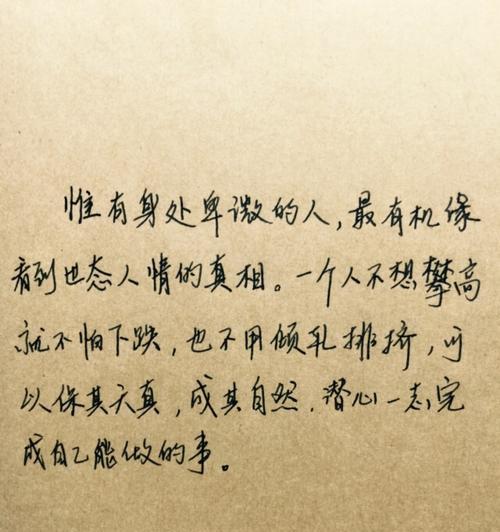 惟有身处卑微的人，最有机缘
看到世态人情的真相。一个人不想攀高
就不怕下跌，也不用倾轧排挤，可
以保其天真，成其自然，潜心一志完
成自己能做的事。